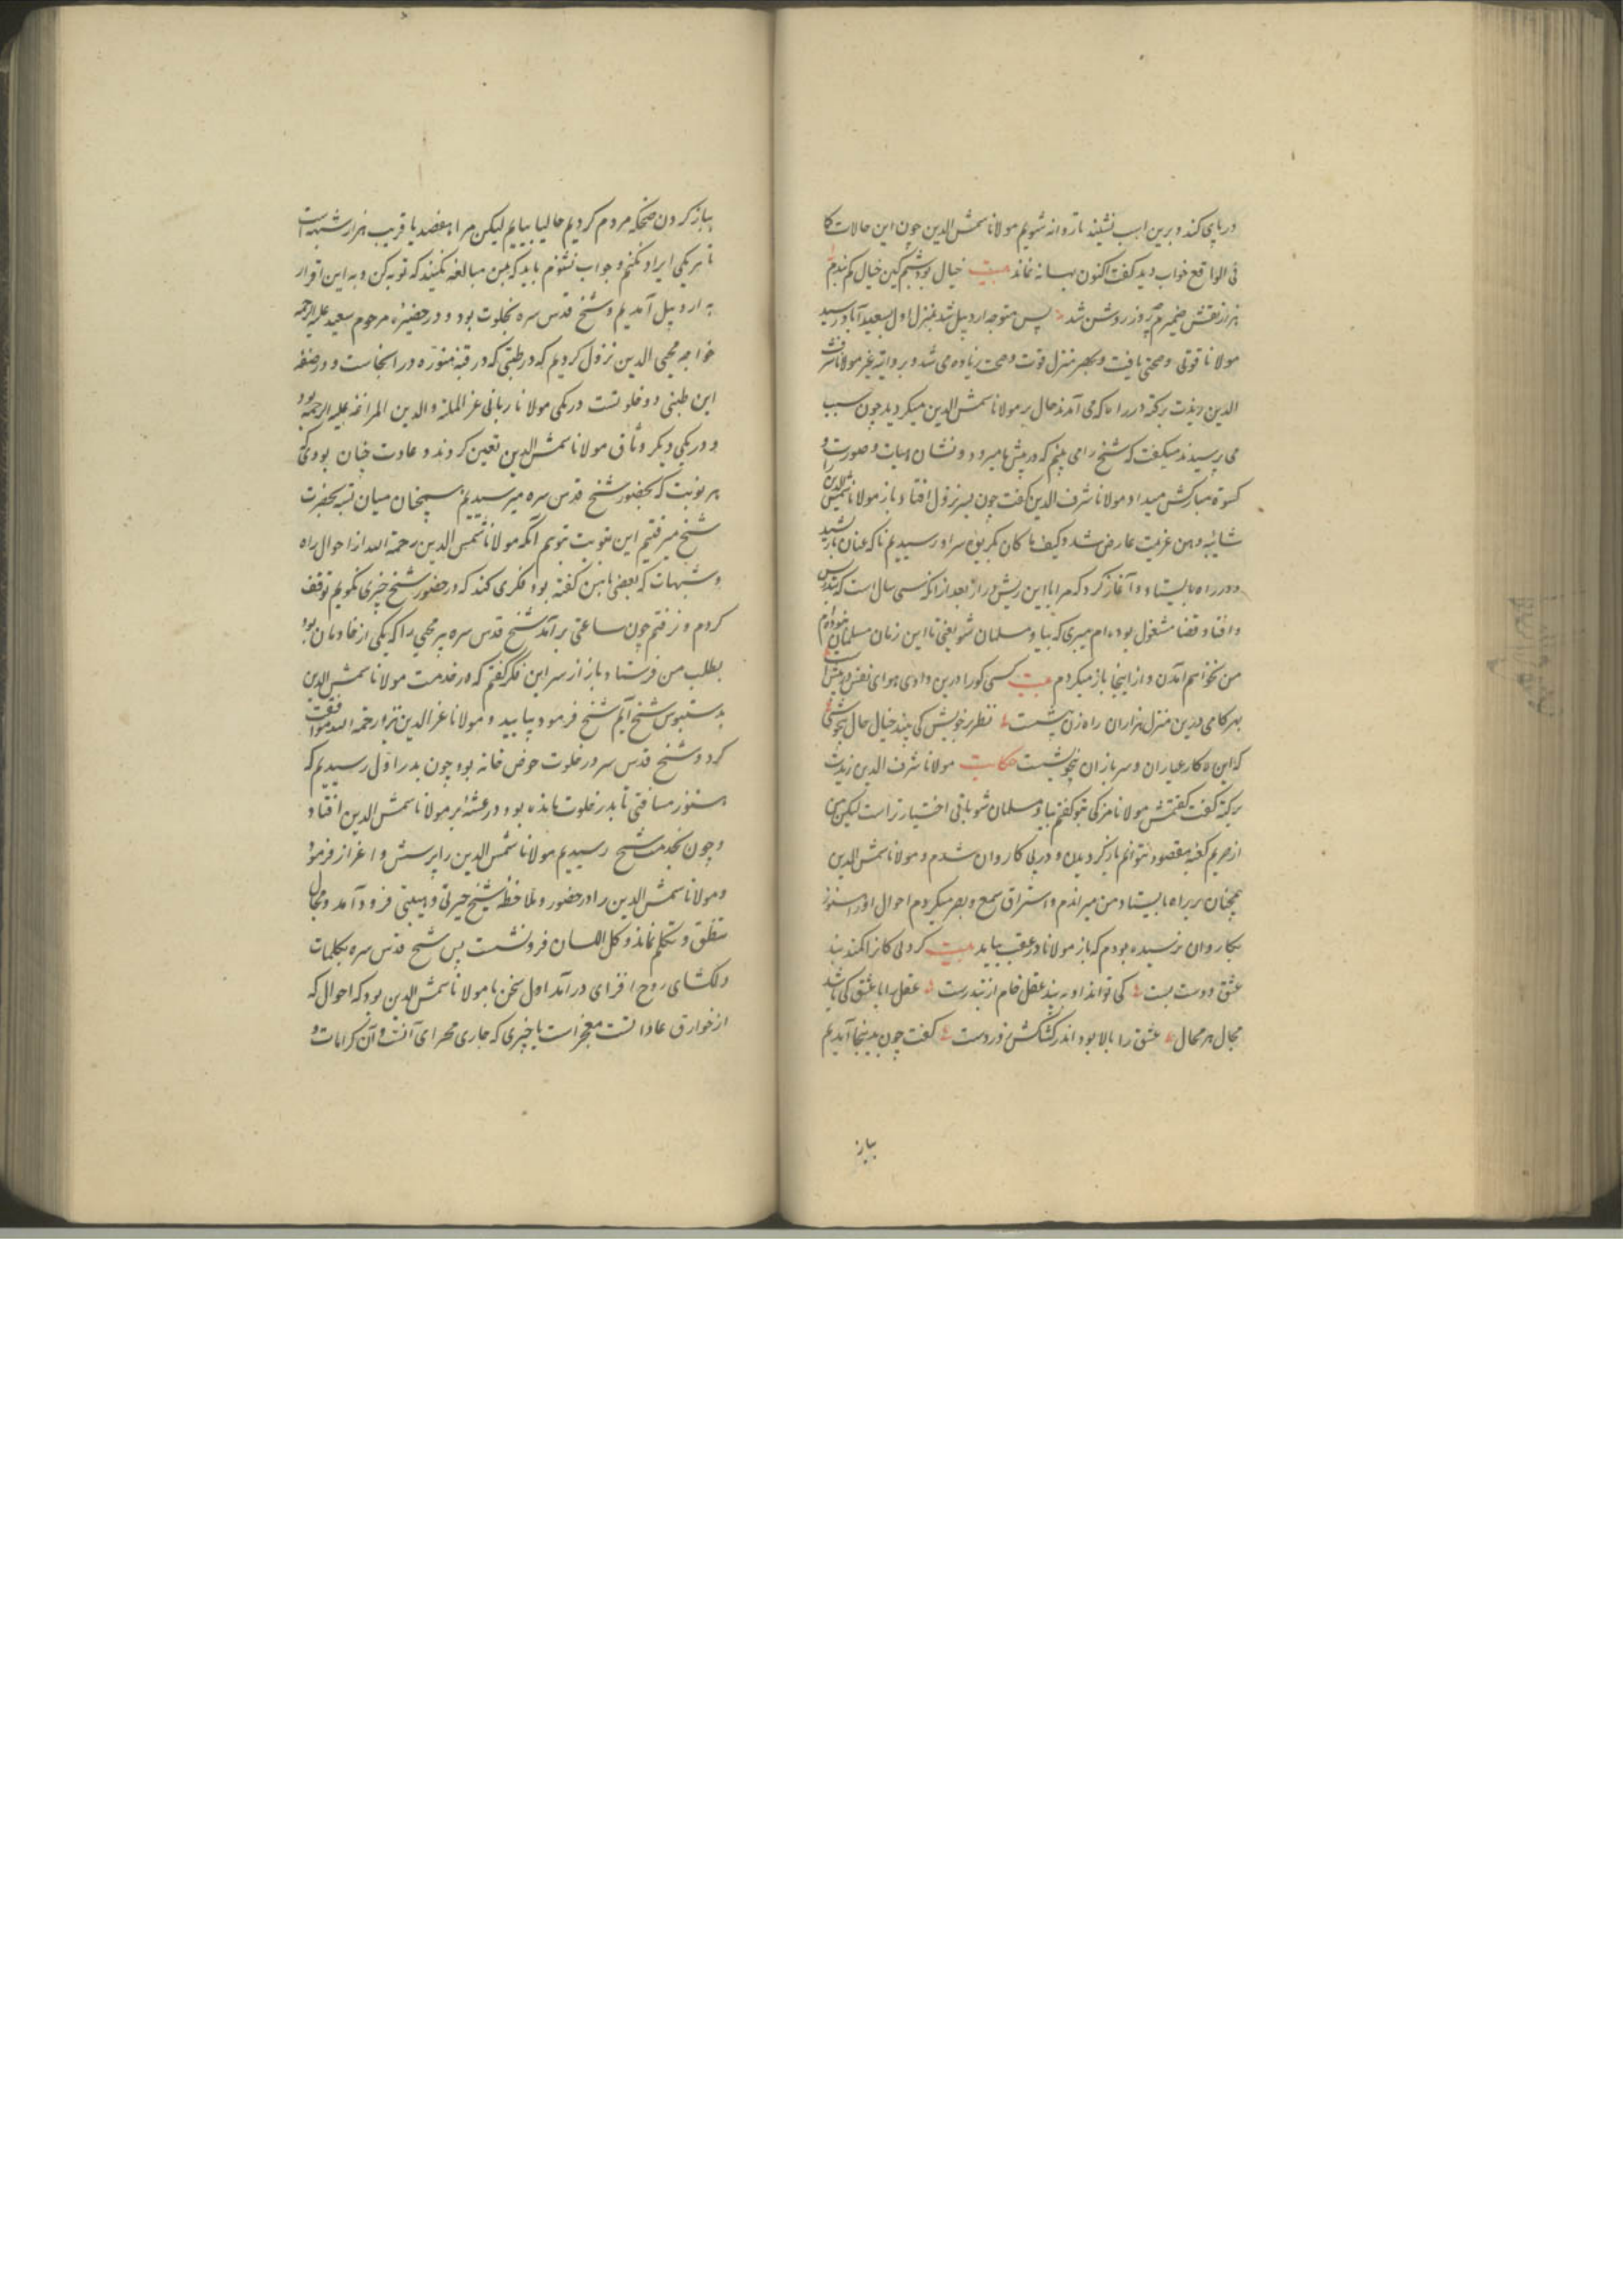 در پای کند و برین اسب نشیند تا روانه شویم مولانا شمس الدین چون این حالات کا
فی الواقع خواب دید گفت اکنون بهانه نماند بیت خیال بود شبم کین خیال کم بندم
هزار نقش ضمیرم بروز روشن شد پس متوجه اردبیل شد بمنزل اول بسعیدآباد رسید
مولانا قوتی و صحتی یافت و بهر منزل قوت و صحت زیاده می شد و بروایة غیر مولانا شرف
الدین زیدت برکته در راه که می آمدند حال بر مولانا شمس الدین میگردید چون سبب
می پرسیدند میگفت که شیخ را می بینم که در پیش ما میرود و نشان هیأت و صورت و
کسوة مبارکش میداد مولانا شرف الدین گفت چون بسر نزول افتاد باز مولانا شمس الدین را
شائبه وهن عزیمت عارض شد و کیف ما کان بسراو رسیدیم ناگه عنان باز کشید
و در راه بایستاد و آغاز کرد که مرا با این ریش دراز بعد از آنکه سی سال است که بتدریس
و افتا و قضا مشغول بوده ام میبری که بیا و مسلمان شو یعنی تا این زمان مسلمان نبوده ام
من نخواهم آمدن و از اینجا باز میگردم بیت کسی کورا درین وادی هوای نفس در پیش است
بهر گامی درین منزل هزاران راه زن بیشست نظر بر خویش کی بیند خیال حال بیخویشی
که این ره کار عیاران و سربازان بیخویشست حکایت مولانا شرف الدین زیدت
برکته گفت گفتمش مولانا من کی بتو گفتم بیا و مسلمان شو باقی اختیار تراست لیکن من
از حریم کعبه مقصود نتوانم باز گردیدن و در پی کاروان شدم و مولانا شمس الدین
همچنان بر راه بایستاد و من میراندم و استراق سمع و بصر میکردم احوال او را هنوز
بکاروان نرسیده بودم که باز مولانا در عقب بیامد بیت کردلی کانرا کمند بند
عشق دوست بست کی تواند او به بند عقل خام از بند رست عقل را با عشق کی باشد
مجال هر محال عشق را بالا بود اندر کشاکش زور دست گفت چون بدینجا آمدیم
بباز
بباز کردن ضحکه مردم گردیم حالیا بیایم لیکن مرا هفصد یا قریب هزار شبهه است
تا هر یکی ایراد نکنم و جواب نشنوم باید که بمن مبالغه نکنید که توبه کن و به این اقرار
به اردبیل آمدیم و شیخ قدس سره بخلوت بود و در حضیره مرحوم سعید علیه الرحمه
خواجه محیی الدین نزول کردیم که در طنبی که در قبه منوره در آنجاست و در صفه
این طنبی دو خلوتست در یکی مولانا ربانی عز الملة و الدین المراغی علیه الرحمه بود
و در یکی دیگر وثاق مولانا شمس الدین تعیین کردند و عادت چنان بود که
هر نوبت که بحضور شیخ قدس سره میرسیدیم همچنان میان بسته بحضرت
شیخ میرفتیم این نوبت آنکه مولانا شمس الدین رحمة الله از احوال راه
و شبهات که بعضی با من گفته بود فکری کند که در حضور شیخ چیزی نگویم توقف
کردم و نرفتم چون ساعتی برآمد شیخ قدس سره پیر محیی را که یکی از خادمان بود
بطلب من فرستاد باز از سر این فکر گفتم که در خدمت مولانا شمس الدین
بدستبوس شیخ آیم شیخ فرمود بیایید و مولانا عز الدین نیز رحمه الله موافقت
کرد و شیخ قدس سره در خلوت حوض خانه بود چون بدر اول رسیدیم که
هنوز مسافتی تا بدر خلوت مانده بود رعشه بر مولانا شمس الدین افتاد
و چون بخدمت شیخ رسیدیم مولانا شمس الدین را پرسش و اعزاز فرمود
و مولانا شمس الدین را در حضور و ملاحظه شیخ حیرتی و هیبتی فرود آمد و مجال
تنطق و تکلم نماند و کل اللسان فرو نشست پس شیخ قدس سره بکلمات
دلگشای روح افزای درآمد اول سخن با مولانا شمس الدین بود که احوال که
از خوارق عاداتست معجزاست یا چیزی که جاری مجرای آنست و آن کرامات و